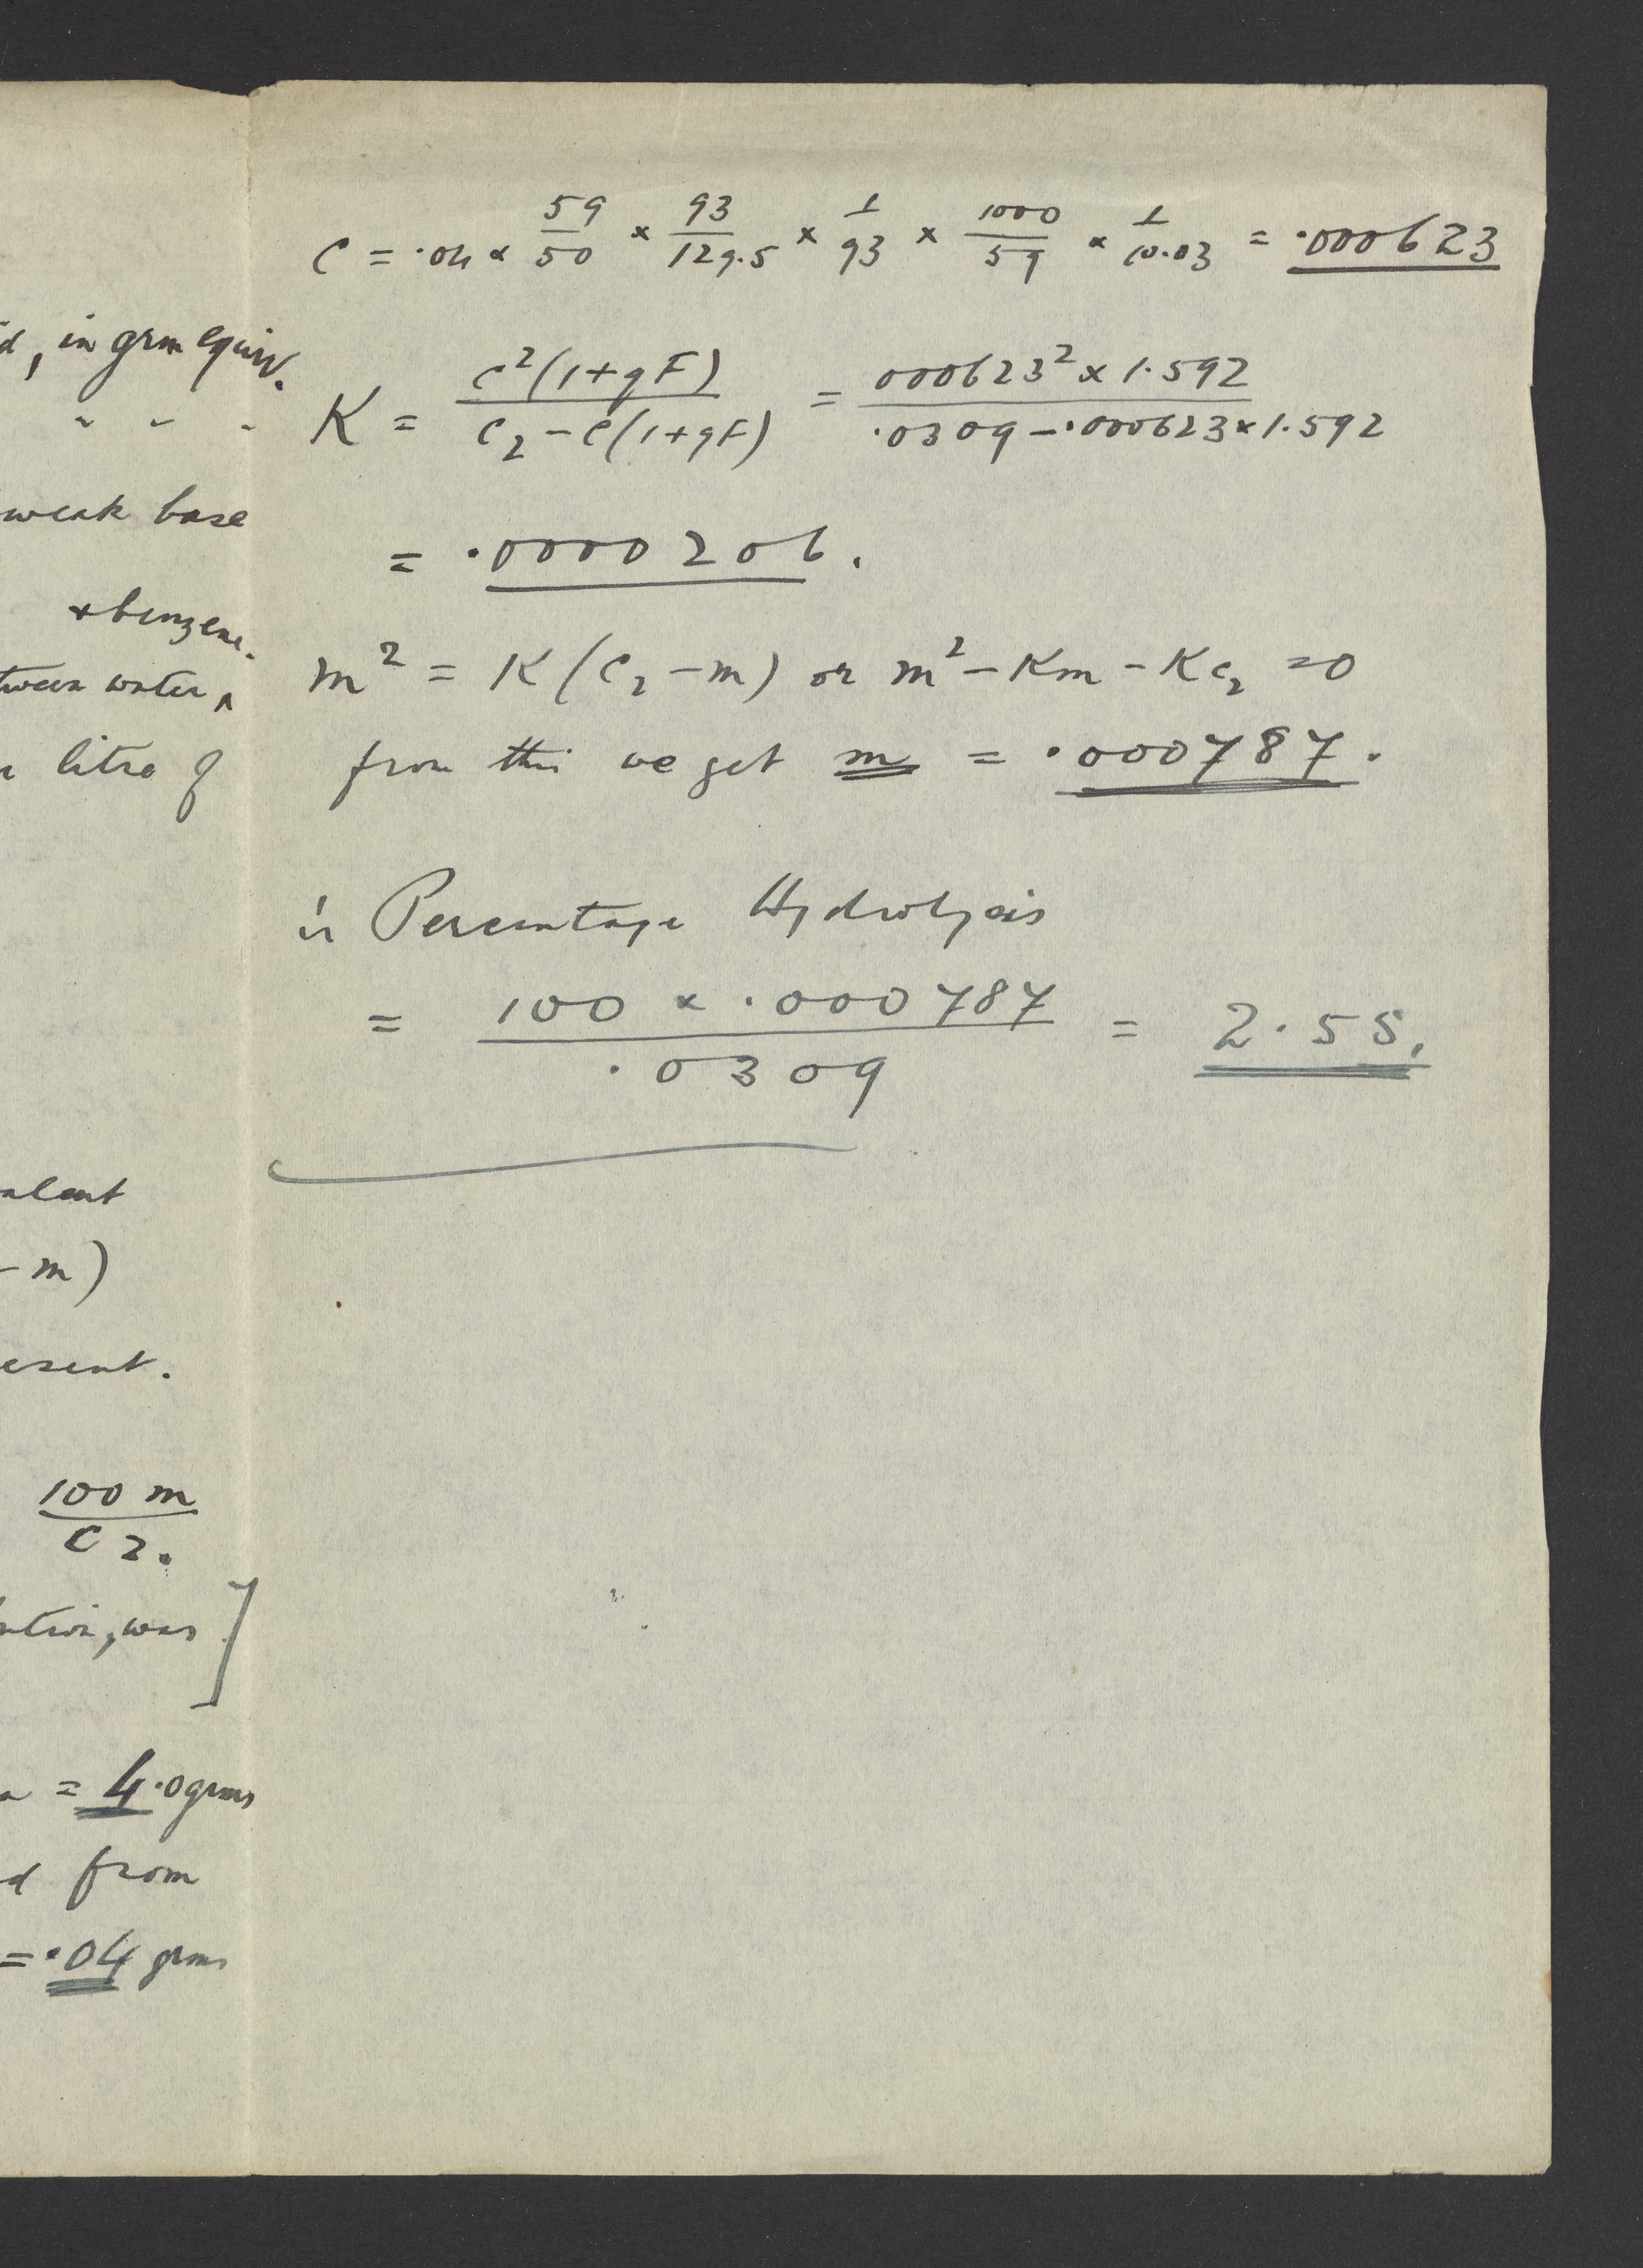 d, in grm equiv.
" " "
weak base
& benzene.
tween water ʌ
litre of
alent
- m)
esent.
100 m
C2.
was ]
= 4.0 grms
d from
= .04 grms
C = .04 × 59/50 × 93/129.5 × 1/93 × 1000/59 × 1/10.03 = .000623
K = c²(1+qF) / c₂-c(1+qF) = 000623² × 1.592 / .0309 - .000623 × 1.592
= .0000206.
m² = K(c₂-m) or m² - Km - Kc₂ = 0
from this we get m = .000787.
Percentage Hydrolysis
= 100 × .000787 / .0309 = 2.55.